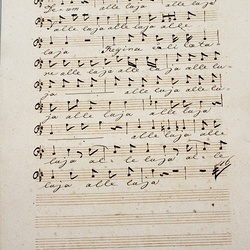 alle luja alle luja alle
luja Regina cœli læta
re alle luja alle ja alle lu
ja alle luja alle luja alle lu
ja alle luja alle luja
alle luja alle
luja al le luja al le
luja alle luja